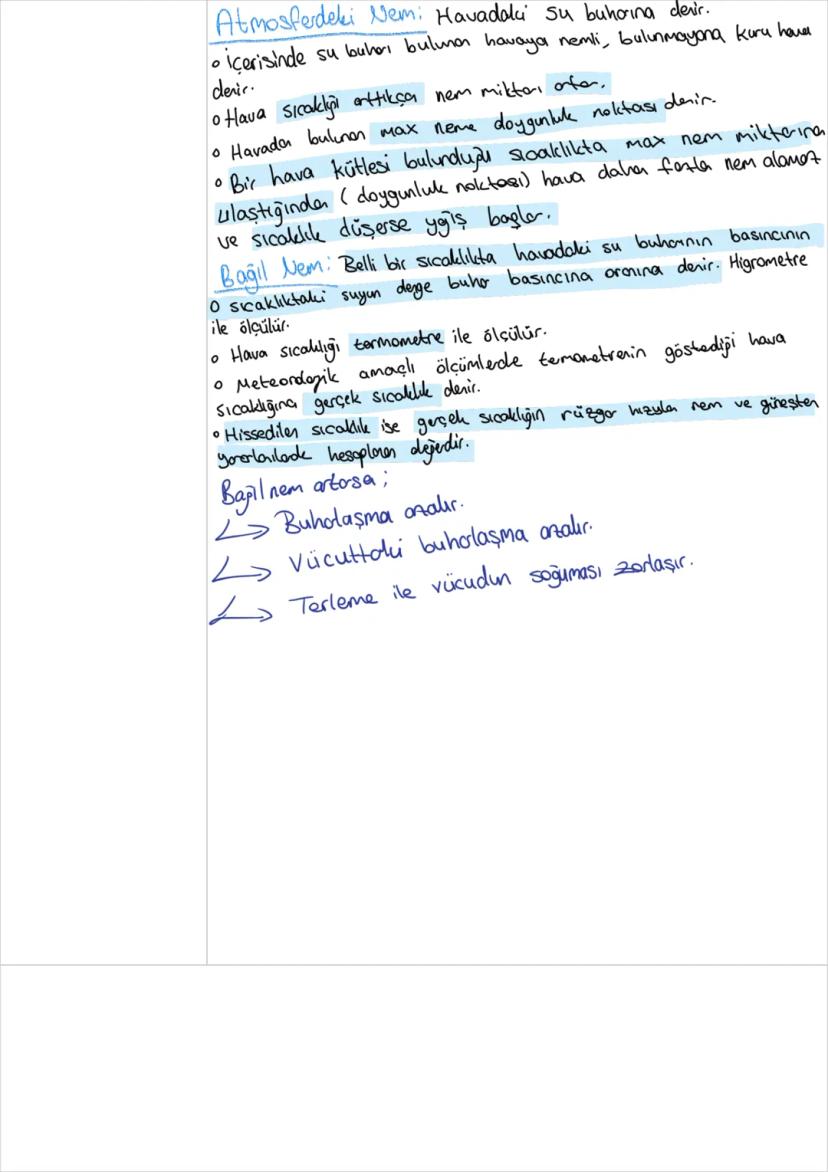 Atmosferdeki Nem: Havadaki su buharına denir.
o İçerisinde su buharı bulunan havaya nemli, bulunmayana kuru hava
denir.
o Hava sıcaklığı arttıkça nem miktarı artar.
o Havada bulunan max neme doygunluk noktası denir.
o Bir hava kütlesi bulunduğu sıcaklıkta max nem miktarına
ulaştığında (doygunluk noktası) hava daha fazla nem alamaz
ve sıcaklık düşerse yağış başlar.
Bağıl Nem: Belli bir sıcaklıkta havadaki su buharının basıncının
O sıcaklıktaki suyun denge buhar basıncına oranına denir. Higrometre
ile ölçülür.
o Hava sıcaklığı termometre ile ölçülür.
o Meteorolojik amaçlı ölçümlerde termometrenin gösterdiği hava
sıcaklığına gerçek sıcaklık denir.
o Hissedilen sıcaklık ise gerçek sıcaklığın rüzgar hızıyla nem ve güneşten
yararlanılarak hesaplanan değerdir.
Bağıl nem artarsa;
Buharlaşma azalır.
Vücuttaki buharlaşma azalır.
Terleme ile vücudun soğuması zorlaşır.